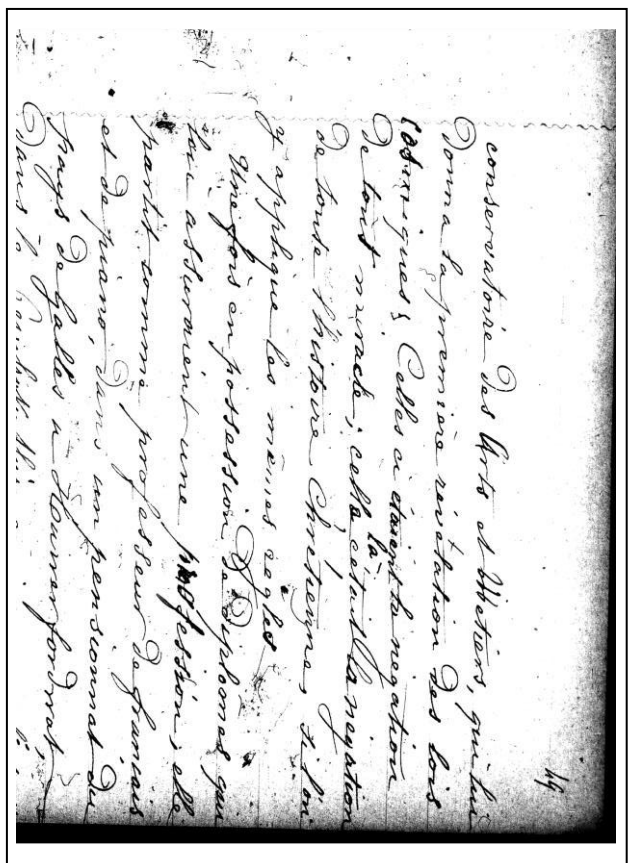 49
conservatoire des Arts et Métiers, qui lui
donna la première révélation des lois
cosmiques; Celles ci étaient la négation
de tout miracle; celle là c'était la négation
de toute l'histoire Chrétienne, si l'on
y applique les mêmes règles
Une fois en possession de diplômes qui
lui assuraient une profession, elle
partit comme professeur de français
et de piano, dans un pensionnat du
pays de Galles a
Dans la